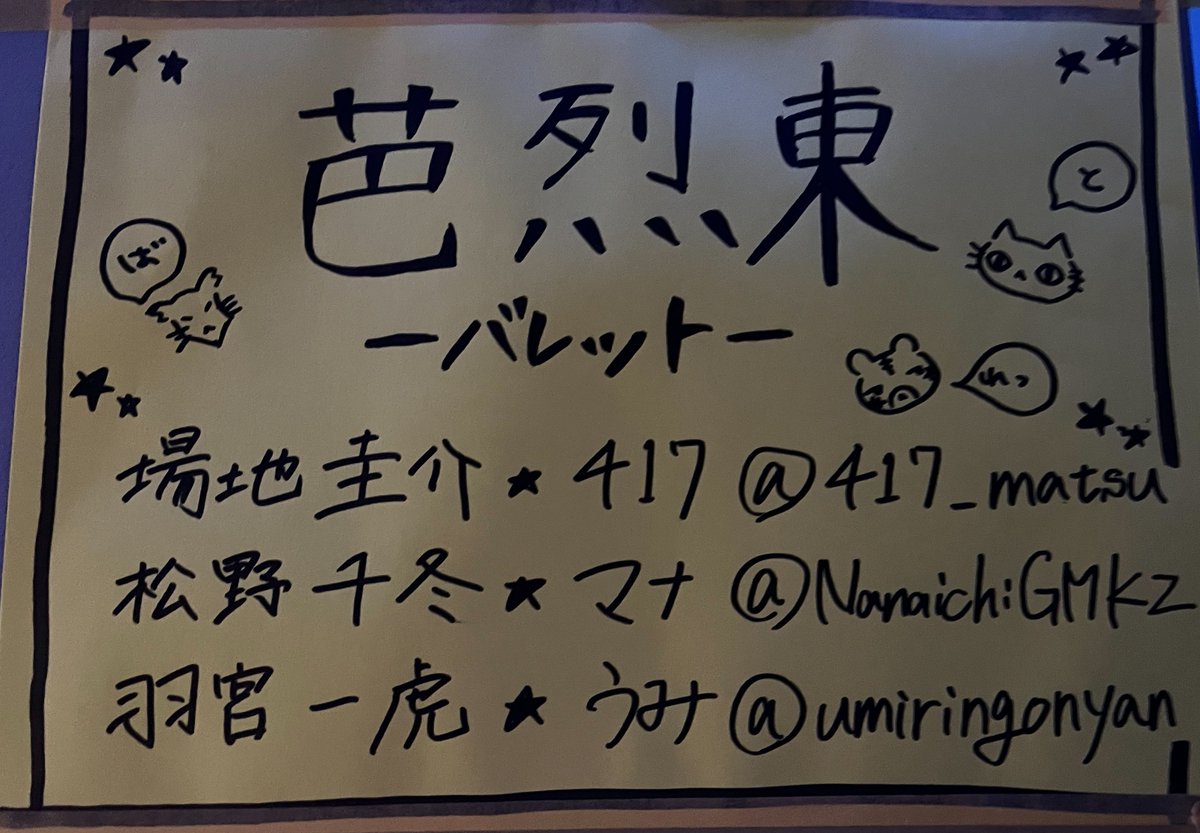 芭烈東
と
ば
ーバレットー
れっ
場地圭介★417 @417_matsu
松野千冬★マナ @NanaichiGMKZ
羽宮一虎★うみ @umiringonyan